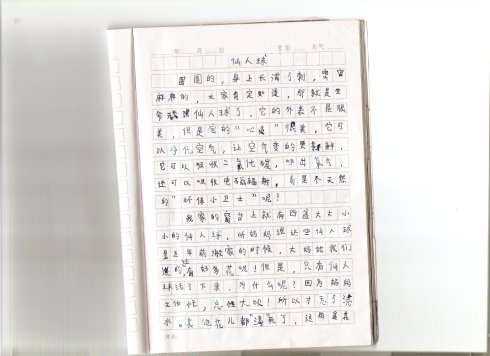 年 月 日 星期 天气
仙人球
圆圆的，身上长满了刺，密密
麻麻的，大家肯定知道，那就是
仙人球了，它的外表不是很
美，但是它的“心灵”很美，它可
以净化空气，让空气变的更新鲜，
它可以吸收二氧化碳，呼出氧气，
还可以吸收电脑辐射，真是不天然
的“环保小卫士”呢！
我家的窗台上就有四盆大大小
小的仙人球，听妈妈说这些仙人球
是五年前搬家的时候，大妈给我们
送的，还有好多花呢！但是，只有仙人
球活了下来，为什么呢？因为妈妈
工作忙，忘性大呗！所以才忘了浇
水，其他花儿都“渴”死了，这四盆